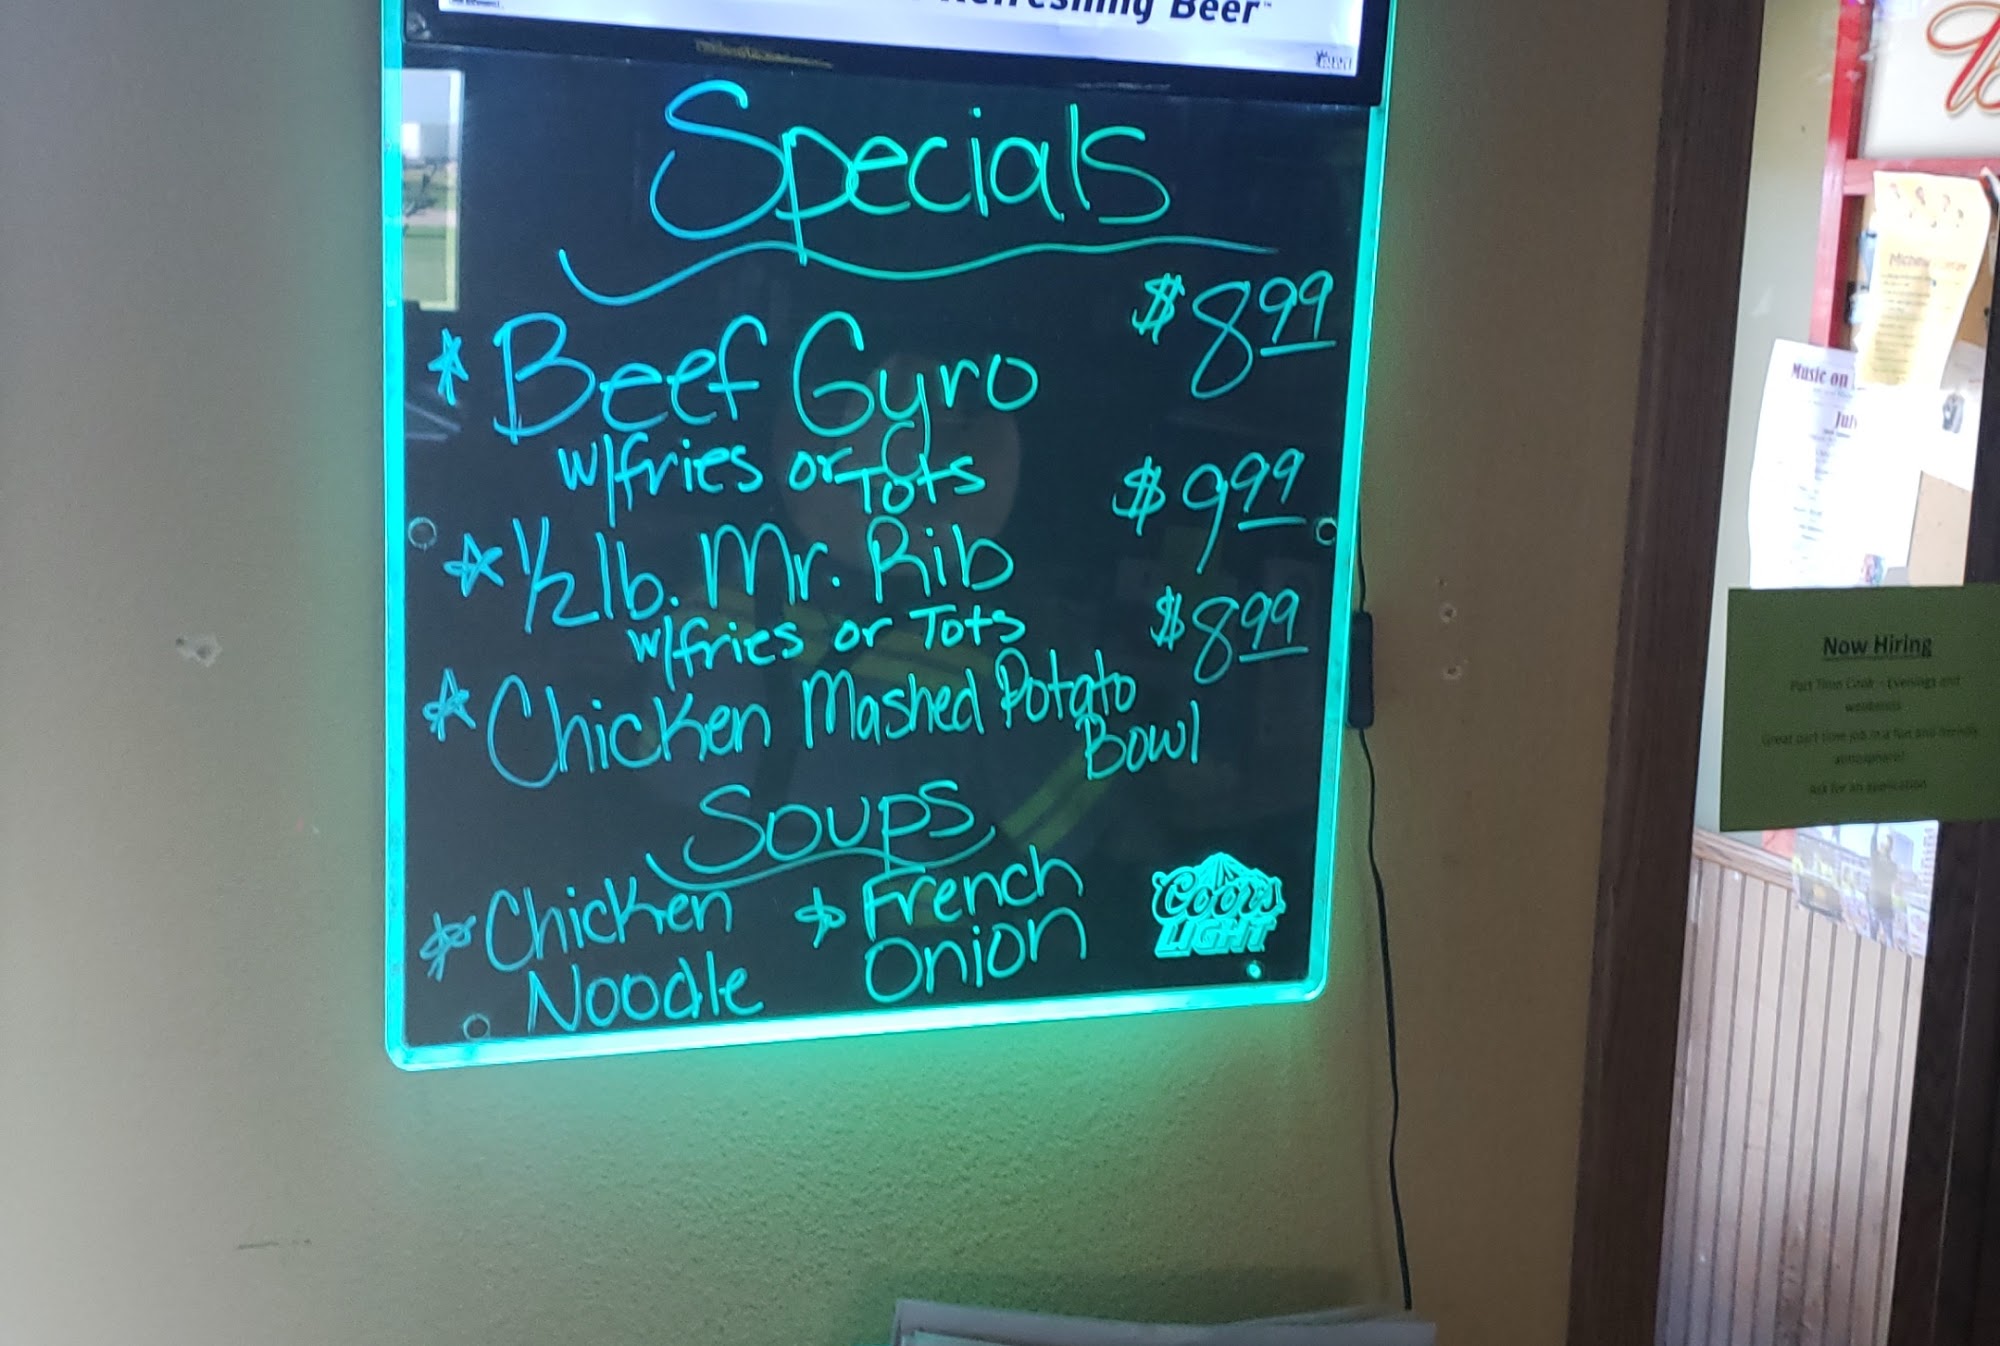 Refreshing Beer™
Specials
Beef Gyro $8.99
w/fries or Tots
1/2 lb. Mr. Rib $9.99
w/fries or Tots
Chicken Mashed Potato Bowl $8.99
Soups
Chicken Noodle
French Onion
Coors
LIGHT
Music on
July
Now Hiring
Part Time Cook - Evenings and
weekends
Great part time job in a fun and friendly
atmosphere!
Ask for an application